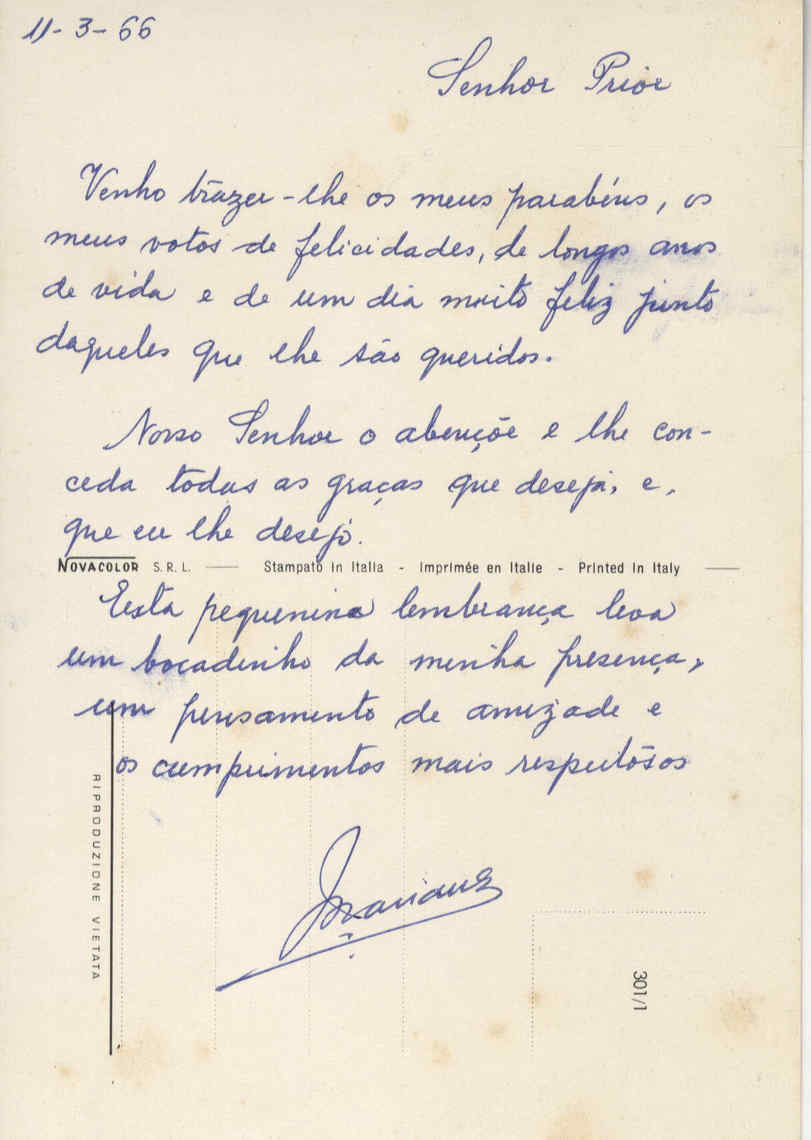 11-3-66
Senhor Prior
Venho trazer-lhe os meus parabéns, os
meus votos de felicidades, de longos anos
de vida e de um dia muito feliz junto
daqueles que lhe são queridos.
Nosso Senhor o abençõe e lhe con-
ceda todas as graças que deseja, e,
que eu lhe desejo.
NOVACOLOR S.R.L. — Stampato in Italia - Imprimée en Italie - Printed in Italy —
Esta pequenina lembrança leva
um bocadinho da minha presença,
um pensamento de amizade e
os cumprimentos mais respeitosos
Mariana
RIPRODUZIONE VIETATA
301/1